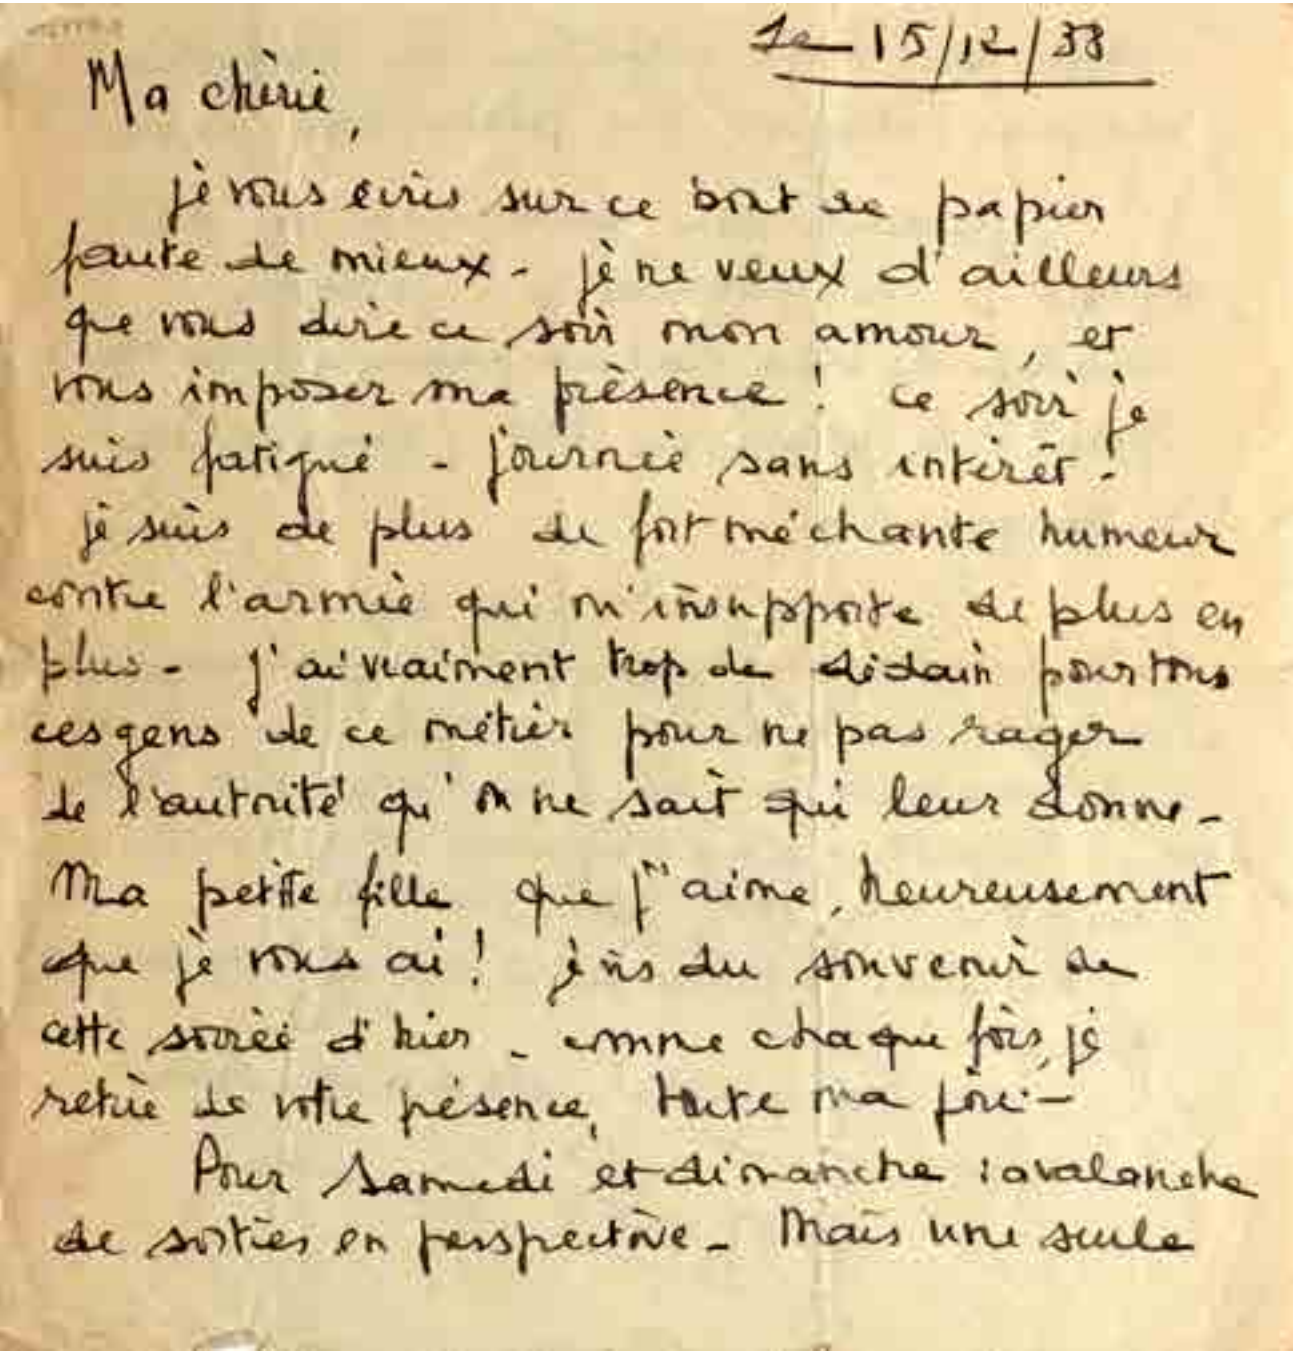 le 15/12/38
Ma chérie,
je vous écris sur ce bout de papier
faute de mieux - je ne veux d'ailleurs
que vous dire ce soir mon amour, et
vous imposer ma présence ! ce soir je
suis fatigué - journée sans intérêt.
je suis de plus de fort méchante humeur
contre l'armée qui m'insupporte de plus en
plus - j'ai vraiment trop de dédain pour tous
ces gens de ce métier pour ne pas rager
de l'autorité qu'on ne sait qui leur donne -
Ma petite fille que j'aime, heureusement
que je vous ai ! je vis du souvenir de
cette soirée d'hier - comme chaque fois, je
retire de votre présence, toute ma force -
Pour Samedi et dimanche : avalanche
de sorties en perspective - Mais une seule